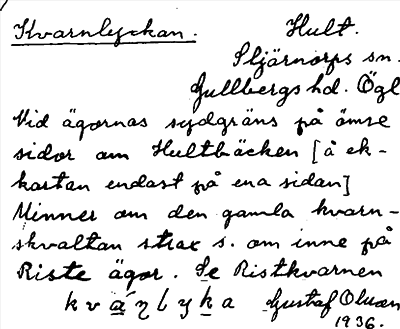 Kvarnlyckan. Hult.
Stjärnorps sn.
Gullbergs hd. Ögl
Vid ägornas sydgräns på ömse
sidor om Hultbäcken [å ek-
kartan endast på ena sidan]
Minner om den gamla kvarn-
skvaltan strax s. om inne på
Riste ägor. Se Ristkvarnen
kvaṇlyka Gustaf Olsson
1936.